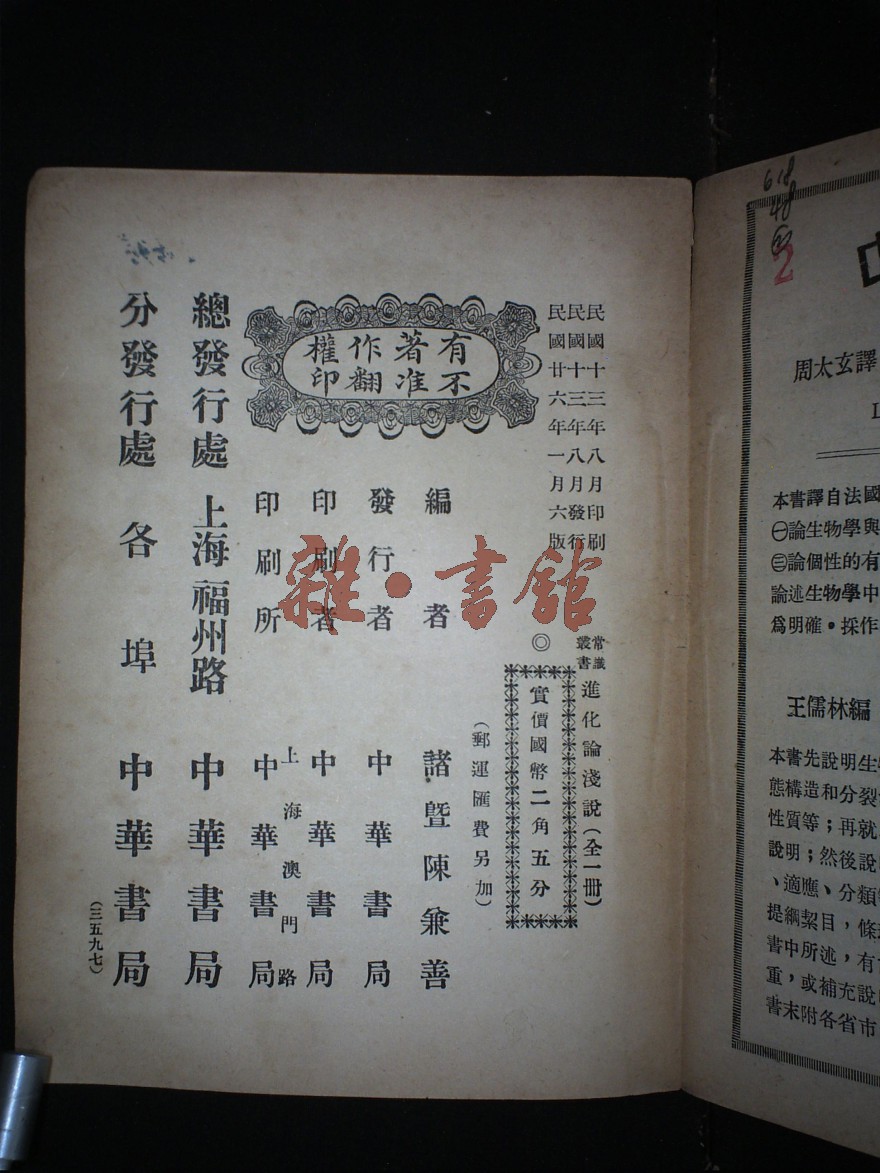 民國十三年八月印刷
民國十三年八月發行
民國廿六年一月六版
常識
叢書
進化論淺說(全一冊)
◎
實價國幣二角五分
(郵運匯費另加)
有著作權
不准翻印
編者 諸暨陳兼善
發行者 中華書局
印刷者 中華書局
上海澳門路
印刷所 中華書局
總發行處 上海福州路 中華書局
分發行處 各埠 中華書局
(三五九七)
雜·書館
618
48
2
中
周太玄譯
本書譯自法國
㊀論生物學與
㊂論個性的有
論述生物學中
爲明確。採作
王儒林編
本書先說明生
態構造和分裂
性質等;再就
說明;然後說
、適應、分類
提綱挈目,條
書中所述,有
重,或補充說
書末附各省市